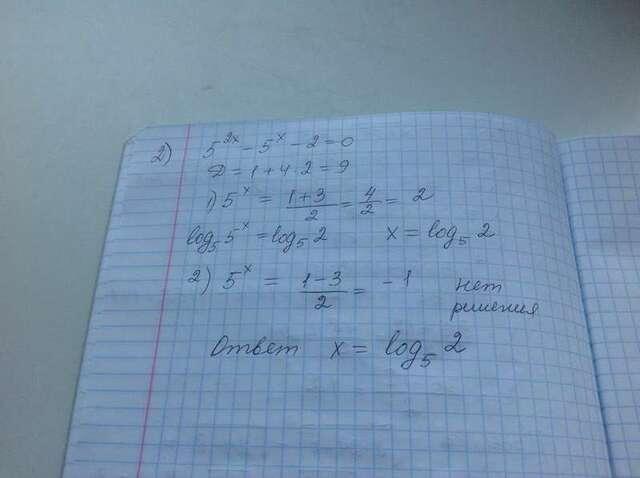 2) 5^{2x} - 5^x - 2 = 0
D = 1 + 4 · 2 = 9
1) 5^x = \frac{1+3}{2} = \frac{4}{2} = 2
log_5 5^x = log_5 2 x = log_5 2
2) 5^x = \frac{1-3}{2} = -1 нет
ришения
Ответ x = log_5 2